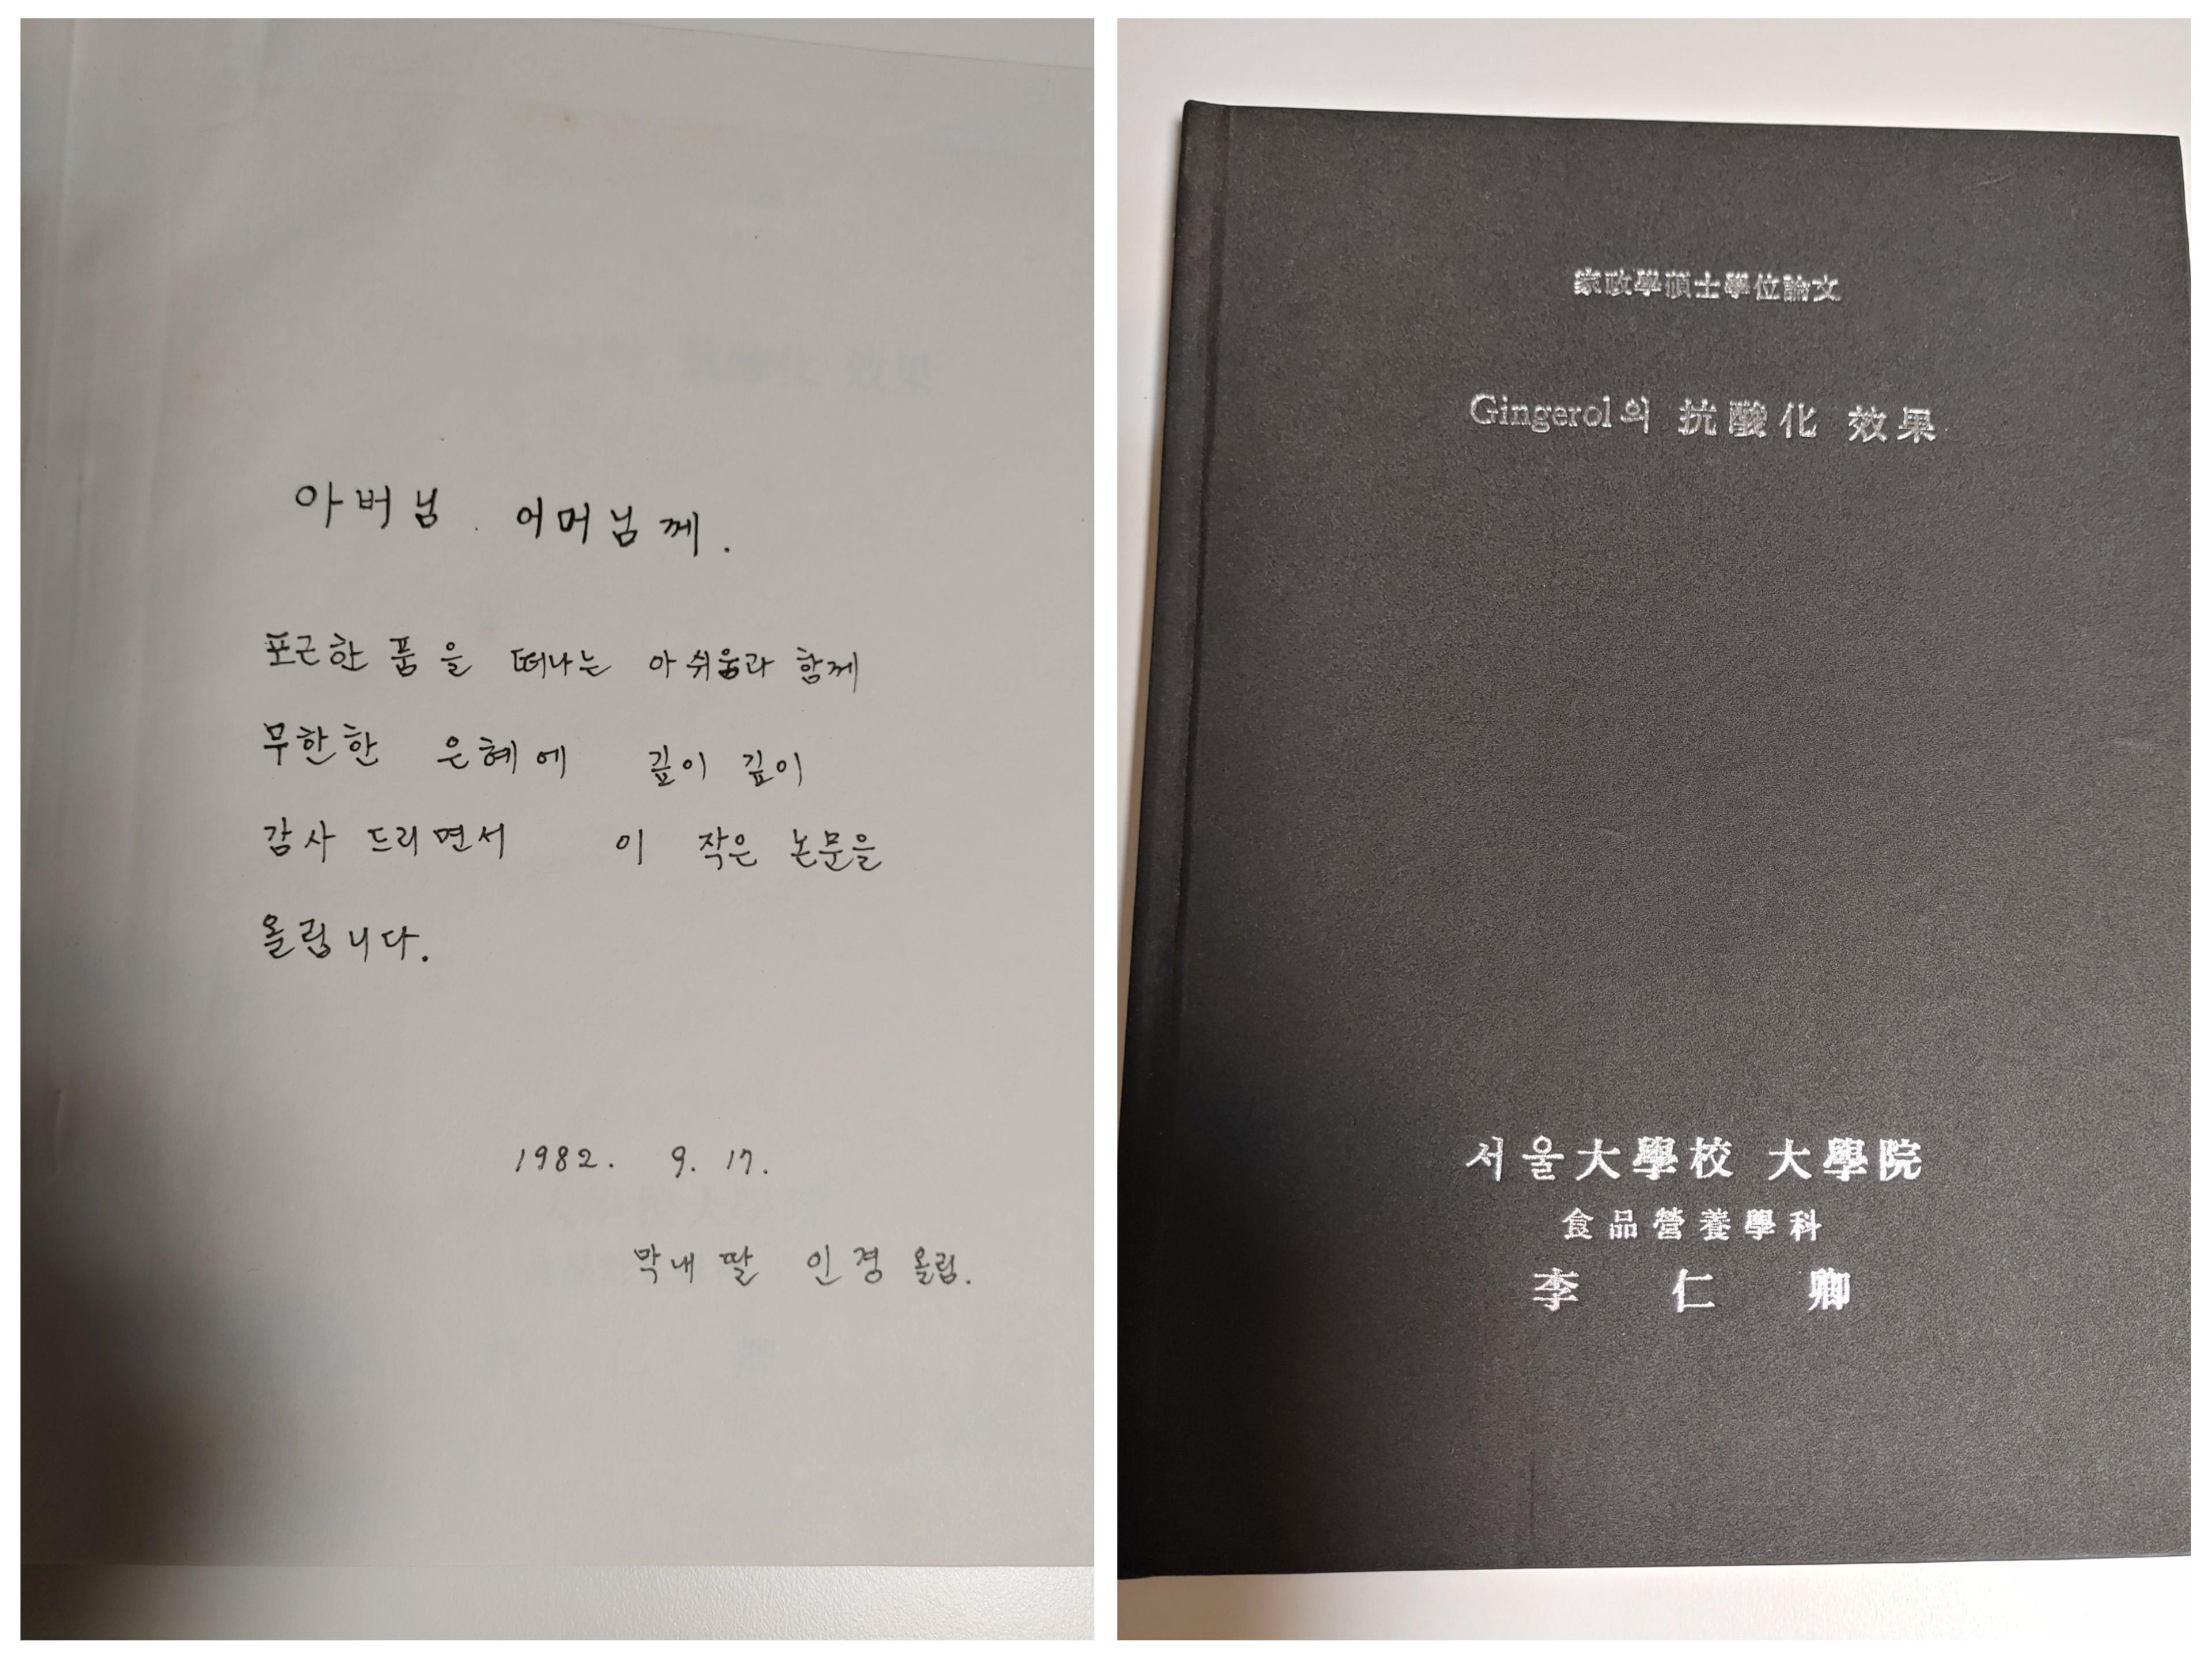 아버님. 어머님께.
포근한 품을 떠나는 아쉬움과 함께
무한한 은혜에 깊이 깊이
감사 드리면서 이 작은 논문을
올립니다.
1982. 9. 17.
막내 딸 인경 올림.
家政學碩士學位論文
Gingerol의 抗酸化 效果
서울大學校 大學院
食品營養學科
李 仁 卿